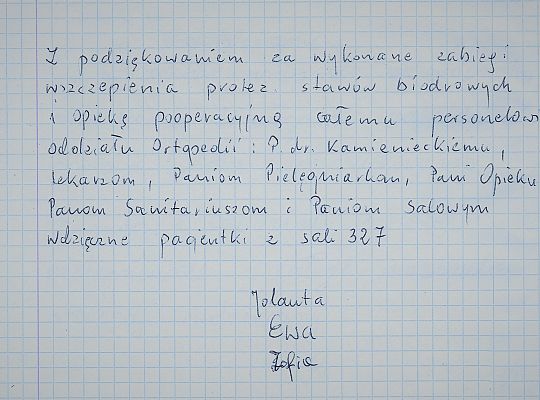 Z podziękowaniem za wykonane zabiegi
wszczepienia protez stawów biodrowych
i opiekę pooperacyjną całemu personelowi
oddziału Ortopedii: P. dr. Kamienieckiemu,
lekarzom, Paniom Pielęgniarkom, Pani Opieku
Panom Sanitariuszom i Paniom Salowym
wdzięczne pacjentki z sali 327
Jolanta
Ewa
Zofia